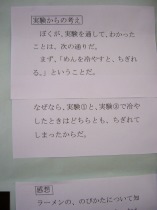 実験からの考え
ぼくが、実験を通して、わかった
ことは、次の通りだ。
まず、「めんを冷やすと、ちぎれ
る。」ということだ。
なぜなら、実験①と、実験③で冷や
したときはどちらとも、ちぎれて
しまったからだ。
感想
ラーメンの、のびかたについて知